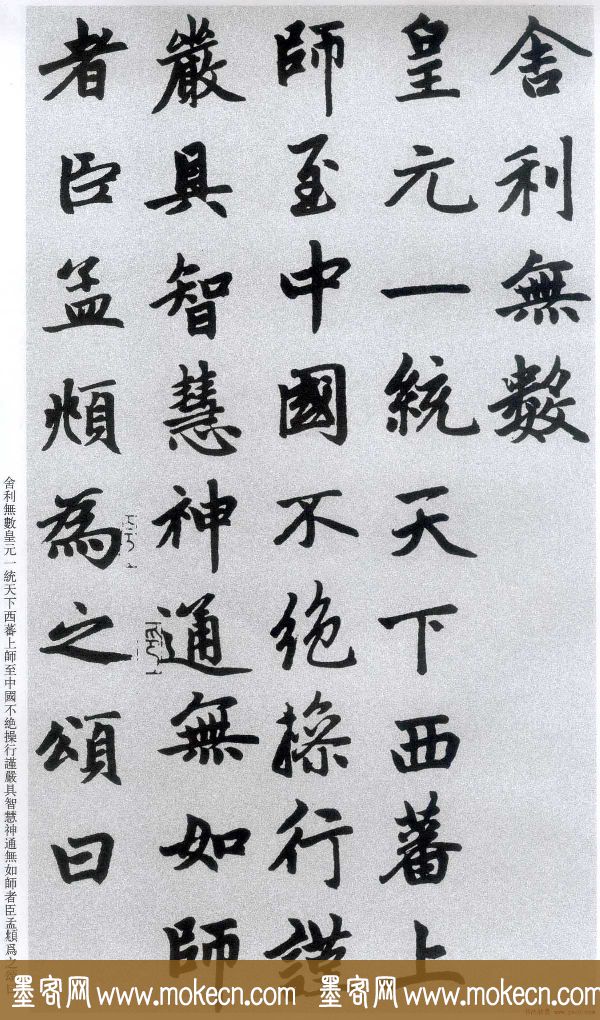 舍利無數
皇元一統天下西蕃上
師至中國不绝操行謹
嚴具智慧神通無如師
者臣孟頫為之頌曰
舍利無數皇元一統天下西蕃上師至中國不绝操行謹嚴具智慧神通無如師者臣孟頫爲之頌曰
墨客网 www.mokecn.com 墨客网 www.mokecn.com